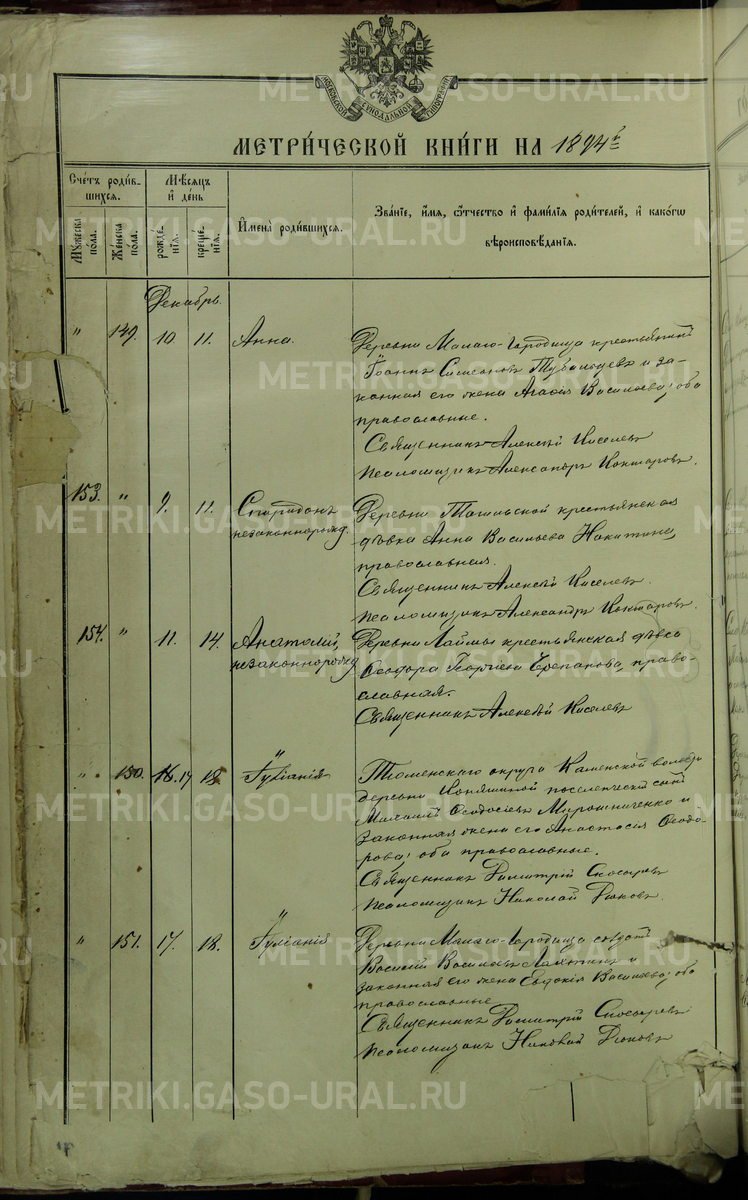 METRIKI.GASO-URAL.RU
МОСКОВСКОЙ СѴНОДАЛЬНОЙ ТИПОГРАФІИ
МЕТРИ́ЧЕСКОЙ КНИ́ГИ НА 1894 г.
Сче́тъ роди́в-
шихся.
Мѣ́сяцъ
и҆ де́нь
Мꙋ́жеска
по́ла.
Же́нска
по́ла.
рожде́-
нїѧ.
креще́-
нїѧ.
И҆мена̀ роди́вшихся.
Зва́нїе, и҆́мя, ѻ҆́тчество и҆ фами́лїѧ роди́телей, и҆ како́гѡ
вѣроисповѣ́данїѧ.
Декабрь.
" 149. 10 11. Анна.
Деревни Малаго-Городища крестьянинъ
Іоаннъ Симеоновъ и за-
конная его жена Агафія Васильева; оба
православные.
Священникъ Алексѣй Киселевъ
Псаломщикъ Александръ Кокшаровъ.
153. " 9. 11. Спиридонъ
незаконнорожд.
Деревни Тагильской крестьянская
дѣвка Анна Васильева Никитина,
православная.
Священникъ Алексѣй Киселевъ.
Псаломщикъ Александръ Кокшаровъ.
154. " 11. 14. Анатолій,
незаконнорожд.
Деревни Лаймы крестьянская дѣвка
Ѳеодора Георгіева Черепанова, право-
славная.
Священникъ Алексѣй Киселевъ
" 150. 16. 17 18. Іуліанія
Тюменскаго округа Каменской волости
деревни поселенческій сынъ
Ѳеодосіевъ Мирошниченко и
законная жена его Анастасія Ѳеодо-
рова; оба православные.
Священникъ Димитрій Скосыревъ
Псаломщикъ Николай Дюковъ.
" 151. 17. 18. Іуліанія
Деревни Малаго-Городища солдатъ
Василій Васильевъ и
законная его жена Евдокія Васильева; оба
православные
Священникъ Димитрій Скосыревъ
Псаломщикъ Николай Дюковъ